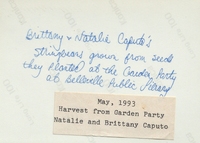 Brittany & Natalie Caputo's
stringbeans grown from seeds
they planted at the Garden Party
at Belleville Public Library
May, 1993
Harvest from Garden Party
Natalie and Brittany Caputo